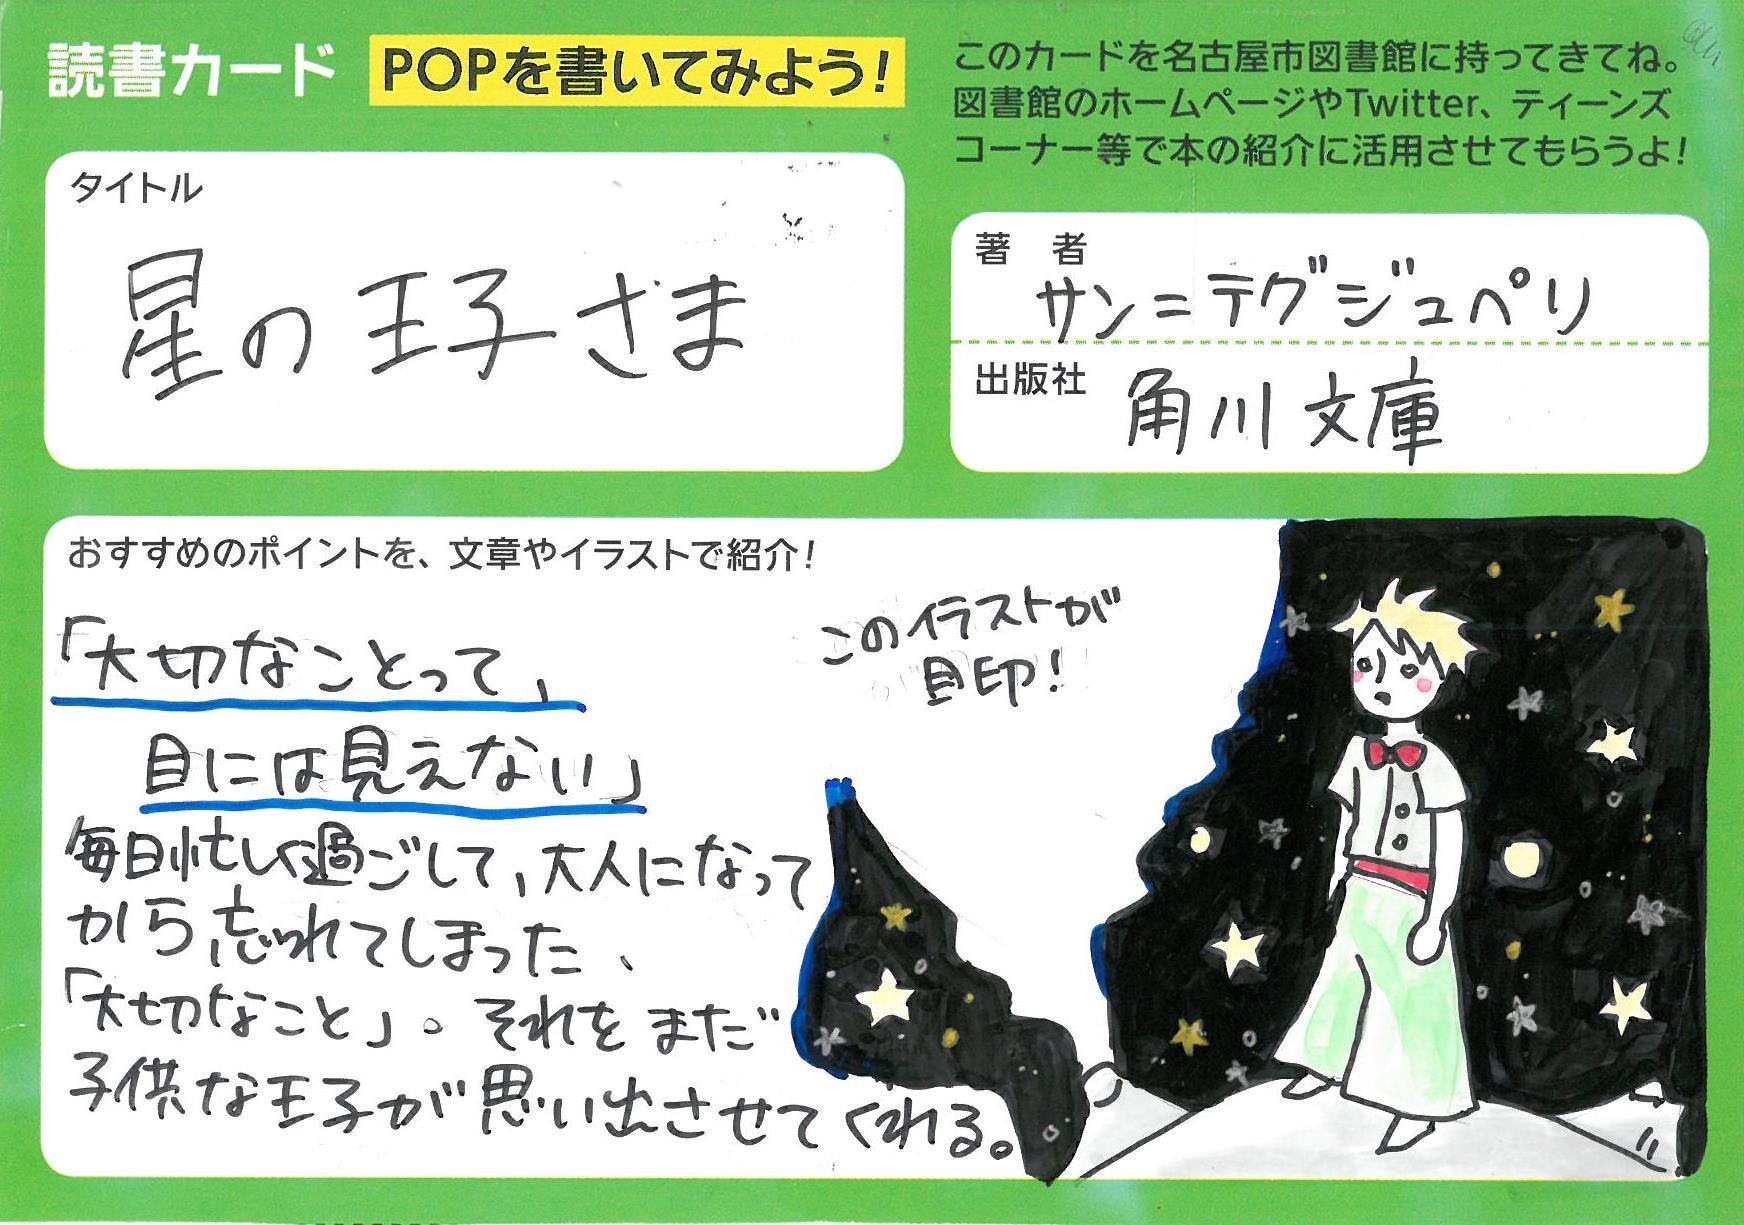 読書カード POPを書いてみよう!
このカードを名古屋市図書館に持ってきてね。
図書館のホームページやTwitter、ティーンズ
コーナー等で本の紹介に活用させてもらうよ!
タイトル
星の王子さま
著 者
サン=テグジュペリ
出版社
角川文庫
おすすめのポイントを、文章やイラストで紹介!
「大切なことって、
目には見えない」
毎日忙しく過ごして、大人になって
から忘れてしまった、
「大切なこと」。それをまだ
子供な王子が思い出させてくれる。
このイラストが
目印!